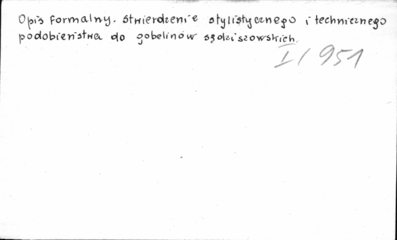 Opis formalny. Stwierdzenie stylistycznego i technicznego
podobieństwa do gobelinów sędziszowskich.
I/951